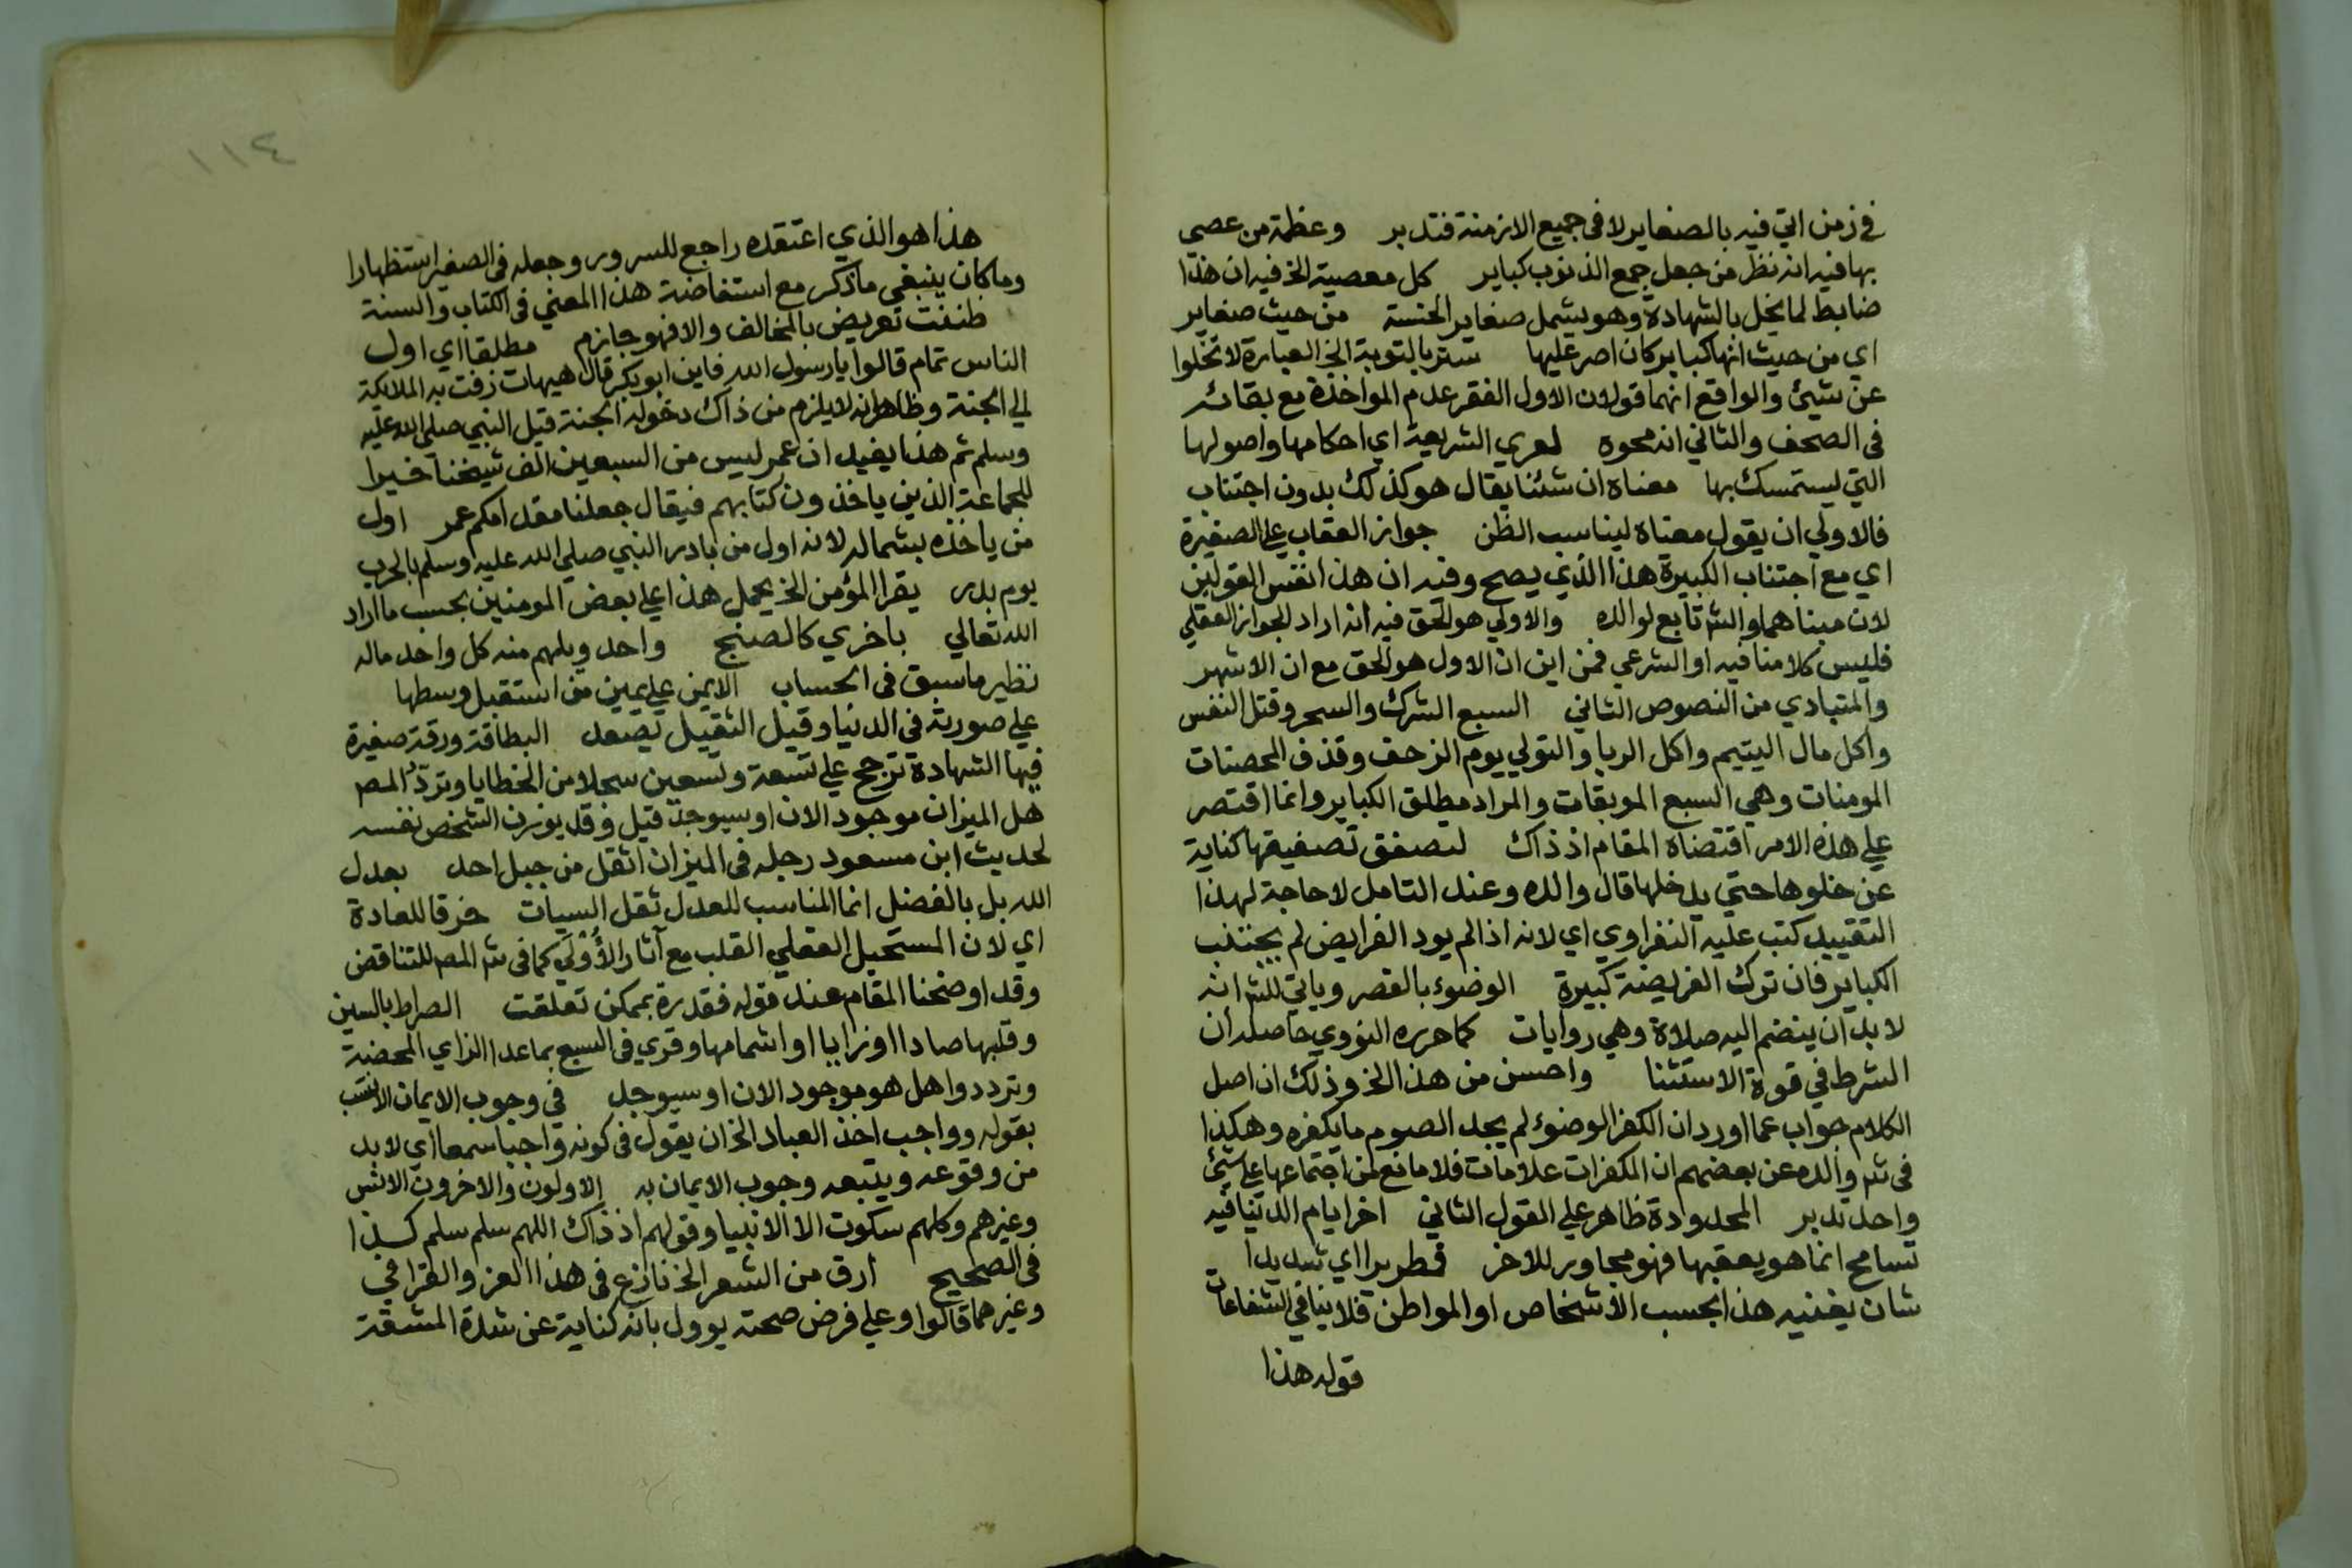 في زمن اتي فيه بالصغاير لا في جميع الازمنة فتدبر وعظمة من عصي
بها فيه انه نظر من جعل جمع الذنوب كباير كل معصية الخ فيه ان هذا
ضابط لما يخل بالشهادة وهو يشمل صغاير الخسة من حيث صغاير
اي من حيث انها كباير كان اصر عليها ستر بالتوبة الخ العبارة لا تخلوا
عن شيئ والواقع انهما قولان الاول الفقر عدم المواخذة مع بقائه
في الصحف والثاني انه محوه لعري الشريعة اي احكامها واصولها
التي ليستمسك بها معناه ان شئنا يقال هو كذلك بدون اجتناب
فالاولي ان يقول معناه ليناسب الظن جواز العقاب علي الصغيرة
اي مع اجتناب الكبيرة هذا الذي يصح وفيه ان هذا نفس القولين
لان مبناهما والش تابع لوالده والاولي هو الحق فيه انه اراد الجواز العقلي
فليس كلامنا فيه او الشرعي فمن اين ان الاول هو الحق مع ان الاشهر
والمتبادي من النصوص الثاني السبع الشرك والسحر وقتل النفس
واكل مال اليتيم واكل الربا والتولي يوم الزحف وقذف المحصنات
المومنات وهي السبع الموبقات والمراد مطلق الكباير وانما اقتصر
علي هذه الامر اقتضاه المقام اذ ذاك لتصفق تصفيقها كناية
عن خلوها حتي يدخلها قال والده وعند التامل لا حاجة لهذا
التقييد كتب عليه النفراوي اي لانه اذا لم يود الفرايض لم يجتنب
الكباير فان ترك الفريضة كبيرة الوضوء بالقصر وياتي للش انه
لا بد ان ينضم اليه صلاة وهي روايات كما حرره النووي حاصله ان
الشرط في قوة الاستثنا واحسن من هذا الخ وذلك ان اصل
الكلام جواب عما اورد ان الكفر الوضوء لم يجد الصوم ما يكفره وهكذا
في ش والده عن بعضهم ان المكفرات علامات فلا مانع من اجتماعها علي شئ
واحد تدبر المحدودة ظاهر علي القول الثاني اخر ايام الدنيا فيه
تسامح انما هو يعقبها فهو مجاور للاخر قمطريرا اي شديدا
شان يغنيه هذا بحسب الاشخاص او المواطن فلا ينافي الشفاعات
قوله هذا
١١٤
هذا هو الذي اعتقده راجع للسرور وجعله في الصغير استظهارا
وما كان ينبغي ما ذكر مع استفاضة هذا المعني في الكتاب والسنة
ظننت تعريض بالمخالف والا فهو جازم مطلقا اي اول
الناس تمام قالوا يا رسول الله فاين ابو بكر قال هيهات زفت به الملائكة
الي الجنة وظاهر انه لا يلزم من ذاك دخوله الجنة قبل النبي صلي الله عليه
وسلم ثم هذا يفيد ان عمر ليس من السبعين الف شيخنا خيرا
للجماعة الذين ياخذون كتابهم فيقال جعلنا مقدامكم عمر اول
من ياخذه بشماله لانه اول من بادر النبي صلي الله عليه وسلم بالحرب
يوم بدر يقرا المؤمن الخ يحمل هذا علي بعض المومنين بحسب ما اراد
الله تعالي باخري كالصنج واحد ويلهم منه كل واحد ماله
نظير ما سبق في الحساب الايمن علي يمين من استقبل وسطها
علي صورته في الدنيا وقيل الثقيل يصعد البطاقة ورقة صغيرة
فيها الشهادة ترجح علي تسعة وتسعين سجلا من الخطايا وتردد المص
هل الميزان موجود الان او سيوجد قيل وقد يوزن الشخص نفسه
لحديث ابن مسعود رجله في الميزان اثقل من جبل احد بعدل
الله بل بالفضل انما المناسب للعدل ثقل السيات خرقا للعادة
اي لان المستحيل العقلي القلب مع آثار الأُوْلَي كما في ش المص للتناقض
وقد اوضحنا المقام عند قوله فقدرة بممكن تعلقت الصراط بالسين
وقلبها صادا او زايا او اشمامها وقري في السبع بما عدا الزاي المحضة
وترددوا هل هو موجود الان او سيوجد في وجوب الايمان الانسب
بقوله وواجب اخذ العباد الخ ان يقول في كونه واجبا سمعا اي لا بد
من وقوعه ويتبعه وجوب الايمان به الاولون والاخرون الانس
وغيرهم وكلهم سكوت الا الانبيا وقولهم اذ ذاك اللهم سلم سلم كذا
في الصحيح ارق من الشعر الخ نازع في هذا العز والقرافي
وغيرهما قالوا وعلي فرض صحته يوول بانه كناية عن شدة المشقة